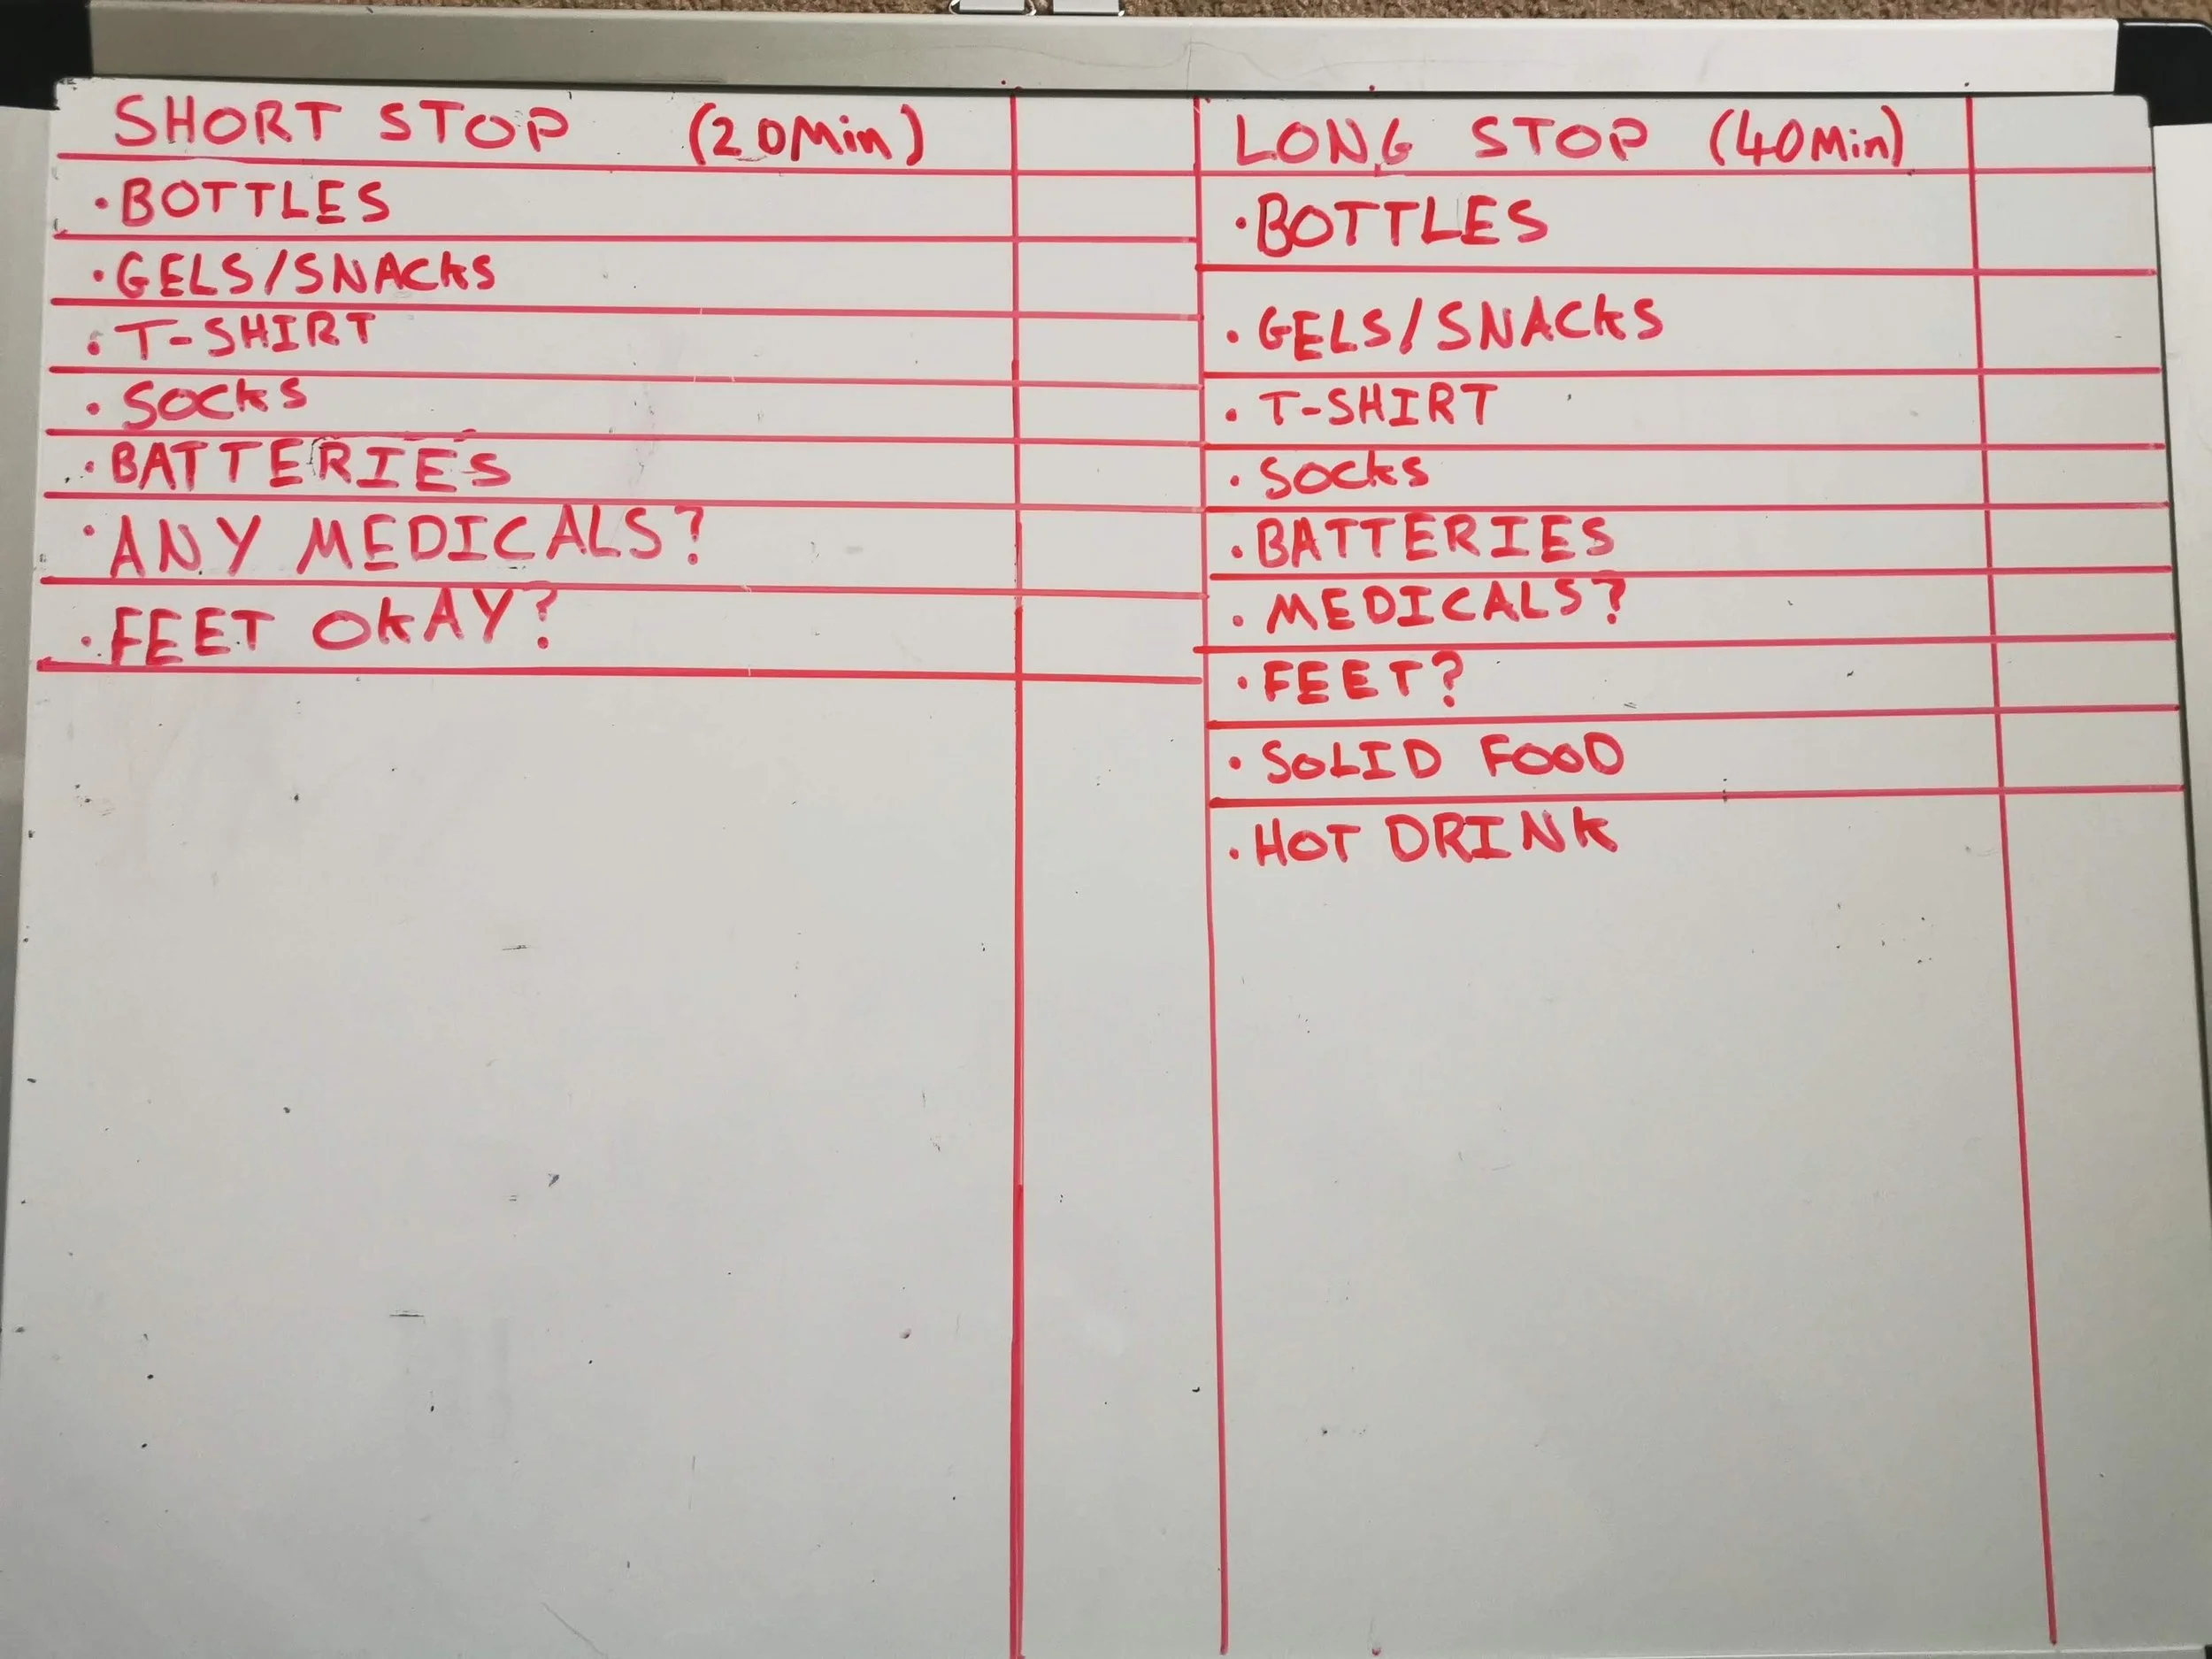 SHORT STOP (20Min)
• BOTTLES
• GELS/SNACKS
• T-SHIRT
• SOCKS
• BATTERIES
• ANY MEDICALS?
• FEET OKAY?
LONG STOP (40Min)
• BOTTLES
• GELS/SNACKS
• T-SHIRT
• SOCKS
• BATTERIES
• MEDICALS?
• FEET?
• SOLID FOOD
• HOT DRINK